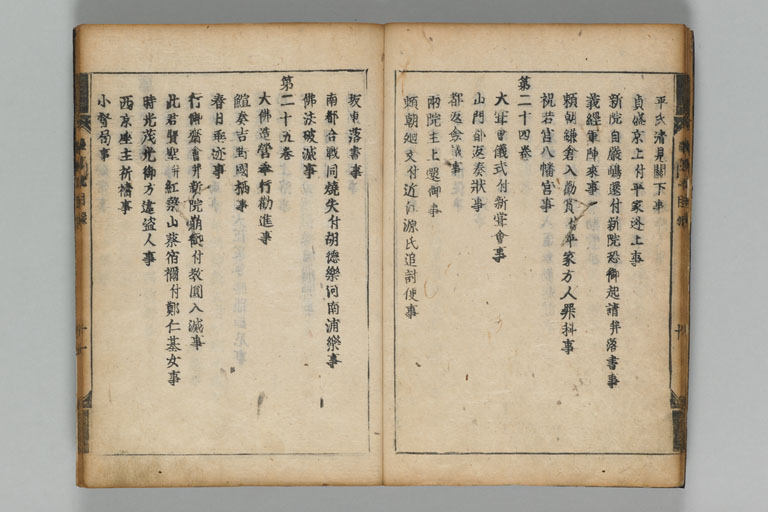 平氏清見關下事
貞盛京上付平家逃上事
新院自嚴嶋還付新院恐御起請并落書事
義經軍陣來事
頼朝鎌倉入勸賞付平家方人罪科事
祝若宮八幡宮事
第二十四卷
大甞會儀式付新甞會事
山門都返奏状事
都返僉議事
兩院主上還御事
頼朝廻文付近江源氏追討使事
坂東落書事
南都合戰同燒失付胡德樂河南浦樂事
佛法破滅事
第二十五卷
大佛造營奉行勸進事
饂奏吉野國栖事
春日垂迹事
行御齋會并新院崩御付教圓入滅事
此君賢聖并紅葉山葵宿禰付鄭仁基女事
時光茂光御方違盗人事
西京座主祈禱事
小督局事